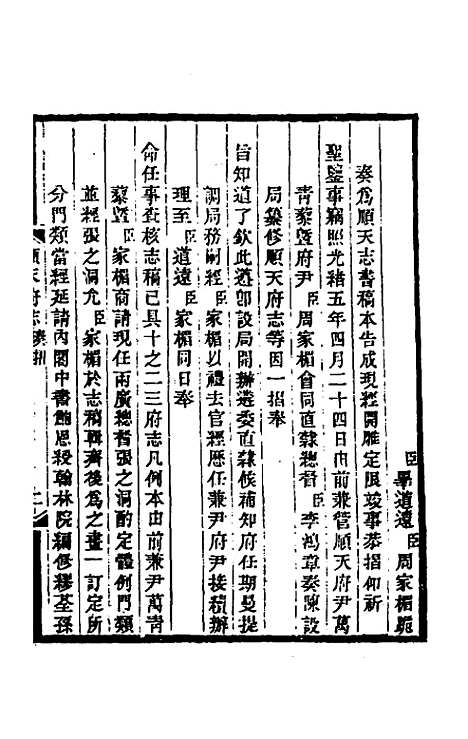 臣畢道遠臣周家楣跪
奏爲順天志書稿本告成現經開雕定限竣事恭摺仰祈
聖鑒事竊照光緒五年四月二十四日由前兼管順天府尹萬
青藜暨府尹臣周家楣會同直隸總督臣李鴻章奏陳設
局纂修順天府志等因一摺奉
旨知道了欽此遵卽設局開辦遴委直隸候補知府任期曼提
調局務嗣經臣家楣以禮去官經歷任兼尹府尹接積辦
理至臣道遠臣家楣同日奉
命任事查核志稿已具十之二三府志凡例本由前兼尹萬青
藜暨臣家楣商請現任兩廣總督張之洞酌定體例門類
並經張之洞允臣家楣於志稿輯齊後爲之畫一訂定所
分門類當經延請內閣中書鮑恩綬翰林院編修繆荃孫
順天府志奏摺